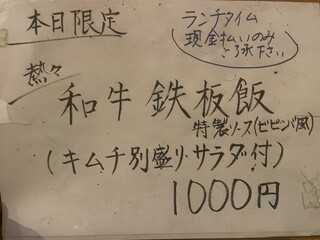 本日限定
ランチタイム
現金払いのみ
ご了承下さい
熱々
和牛鉄板飯
特製ソース(ビビンバ風)
(キムチ別盛り・サラダ付)
1000円